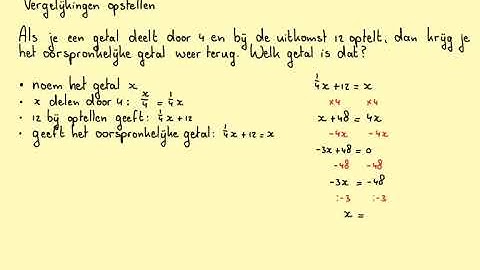 Vergelijkingen opstellen
Als je een getal deelt door 4 en bij de uitkomst 12 optelt, dan krijg je
het oorspronkelijke getal weer terug. Welk getal is dat?
• noem het getal x
• x delen door 4: x/4 = 1/4x
• 12 bij optellen geeft: 1/4x+12
• geeft het oorspronkelijke getal: 1/4x+12=x
1/4x+12 = x
×4 ×4
x+48 = 4x
-4x -4x
-3x+48 = 0
-48 -48
-3x = -48
:-3 :-3
x =